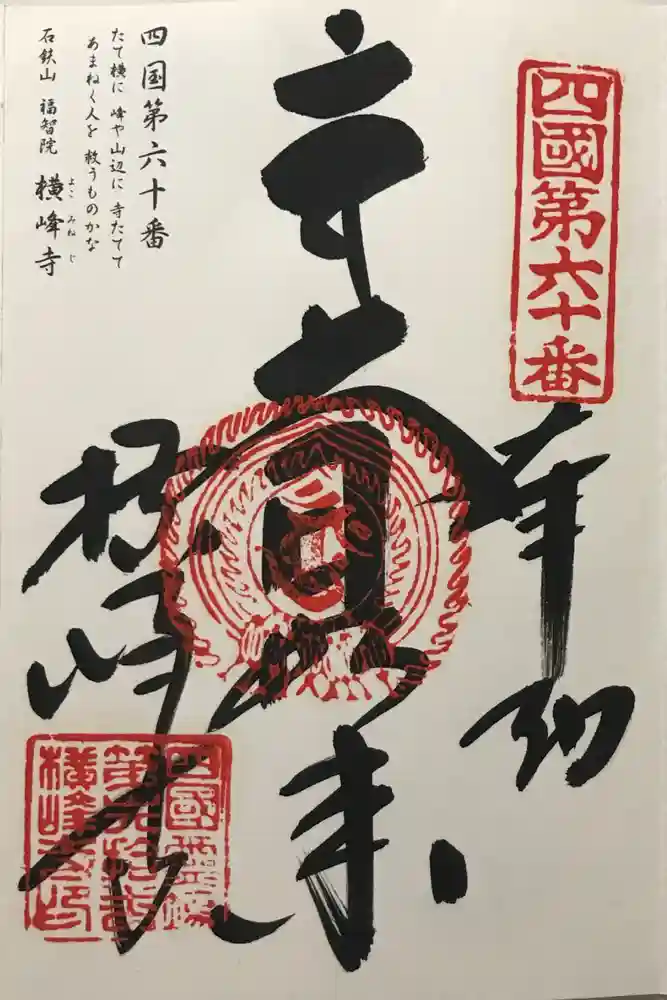 四國第六十番
奉納
大日如来
横峰寺
四国第六十番
たて横に 峰や山辺に 寺たてて
あまねく人を 救うものかな
石鉄山 福智院 横峰寺
よこ みね じ
四國靈場
第六拾番
横峰寺印